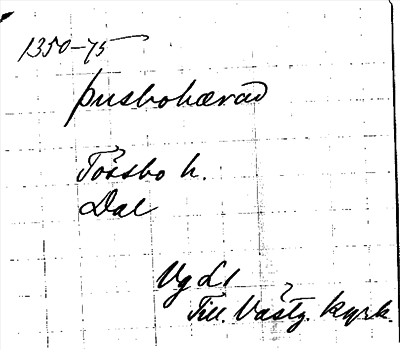 1350-75
þusbohærad
Tössbo h.
Dal
Vg L 1
Till. Västg. kyrk.